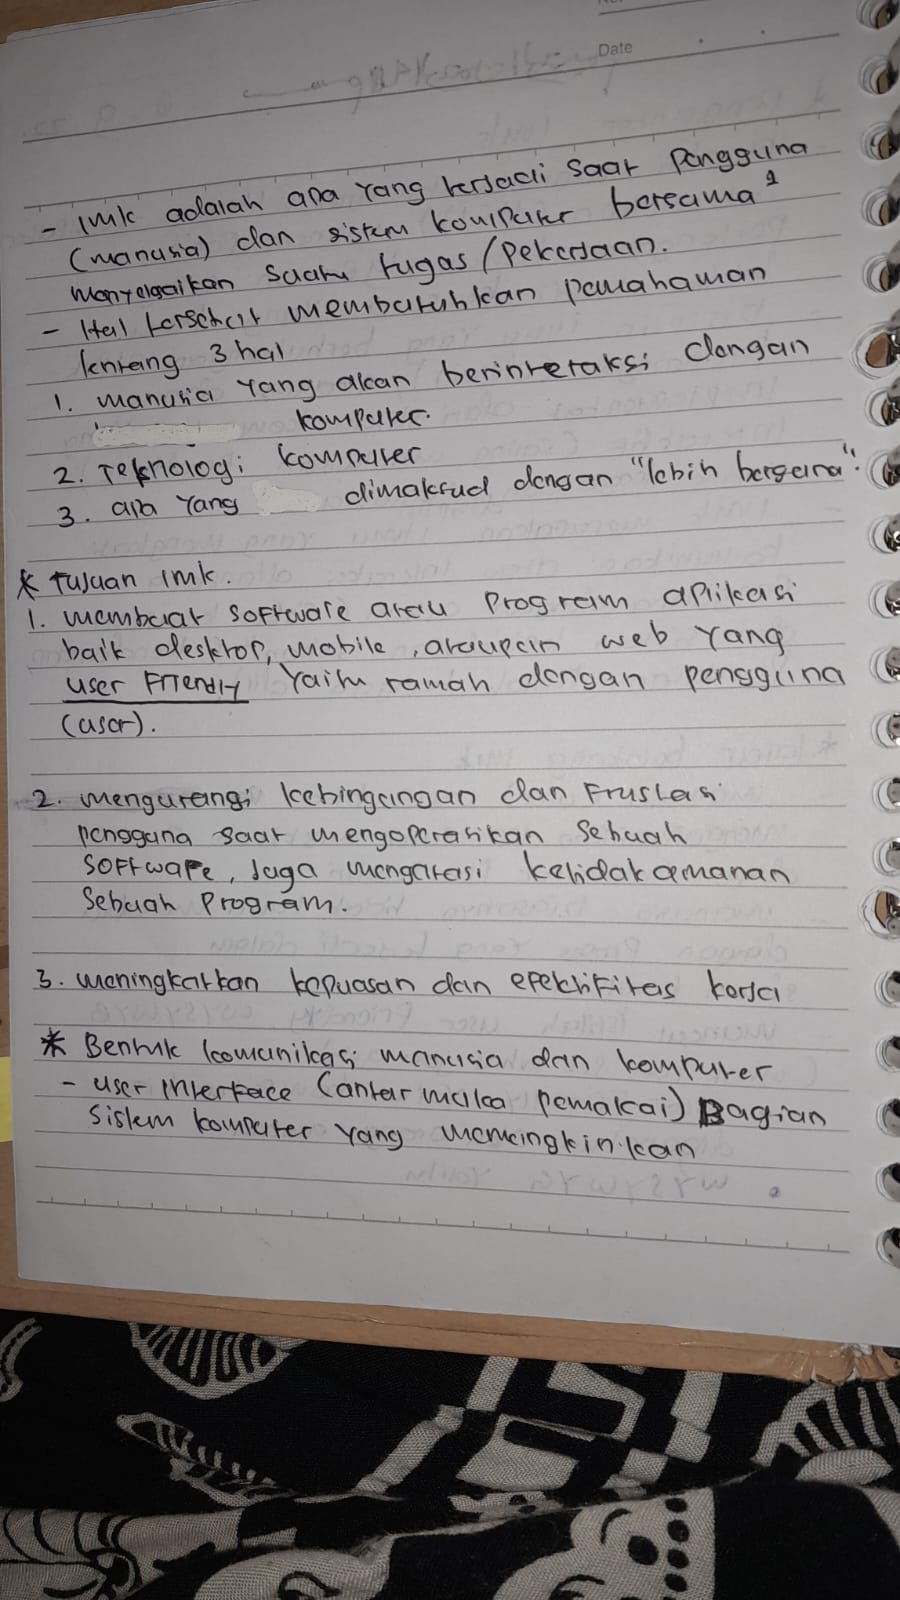 Date
- IMK adalah apa yang terjadi saat pengguna
(manusia) dan sistem komputer bersama²
menyelesaikan suatu tugas/pekerjaan.
- Hal tersebut membutuhkan pemahaman
tentang 3 hal
1. manusia yang akan berinteraksi dengan
komputer.
2. Teknologi komputer
3. apa yang dimaksud dengan "lebih berguna".
* Tujuan IMK.
1. membuat software atau program aplikasi
baik desktop, mobile, ataupun web yang
user Friendly yaitu ramah dengan pengguna
(user).
2. mengurangi kebingungan dan Frustasi
pengguna saat mengoperasikan sebuah
software, juga mengatasi ketidakamanan
sebuah program.
3. meningkatkan kepuasan dan efektifitas kerja
* Bentuk komunikasi manusia dan komputer
- user interface (antar muka pemakai) Bagian
sistem komputer yang memungkinkan